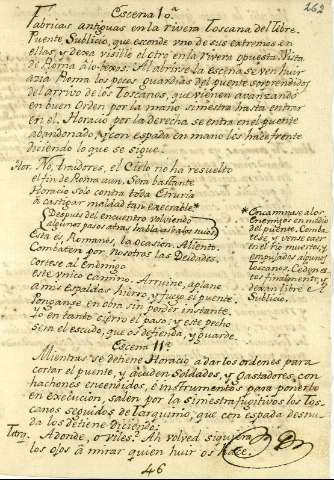 262
Escena 1.a
Fabricas antiguas en la rivera Toscana del Tebre.
Puente Sublicio, que esconde uno de sus extremos en
ellas, y dexa visible el otro en la rivera opuesta. Vista
de Roma a lo lexos. Al abrirse la escena se ven huir
azia Roma los pocos guardias del puente sorprendidos
del arrivo de los Toscanos, que vienen avanzando
en buen orden por la mano siniestra hasta entrar
en el. Horacio por la derecha se entra en el puente
abandonado, y con espada en mano les hace frente
diciendo lo que se sigue.
Hor. No, traidores, el Cielo no ha resuelto
el fin de Roma aun. Sera bastante
Horacio solo contra toda Etruria
a castigar maldad tan execrable.*
Despues del encuentro volviendo
algunos pasos atras habla a los suyos
Esta es, Romanos, la ocasion. Aliento.
Combaten por nosotros las Deidades.
Cortese al Enemigo
este unico camino. Arruine, aplane
a mis espaldas hierro, y fuego el puente.
Ponganse en obra sin perder instante.
Yo en tanto cierro el paso, y este pecho
sera el escudo, que os defienda, y guarde.
* Encaminase a los
Enemigos en medio
del puente. Comba-
tese, y vense caer
en el rio muertos, y
empujados algunos
Toscanos. Ceden es-
tos finalmente, y
dexan libre el
Sublicio.
Escena 11.a
Mientras se detiene Horacio a dar los ordenes para
cortar el puente, y acuden Soldados, y Gastadores con
hachones encendidos, e instrumentos para ponerlo
en execucion, salen por la siniestra fugitivos los Tos-
canos seguidos de Tarquinio, que con espada desnu-
da los detiene diciendo:
Tarq. Adonde, o viles? Ah volved siquiera
los ojos a mirar quien huir os hace.
46